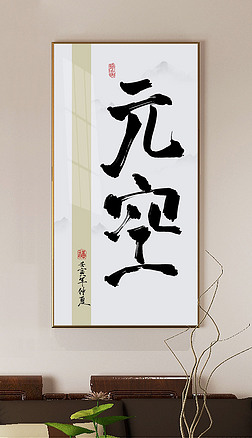 元空
壬寅年仲夏